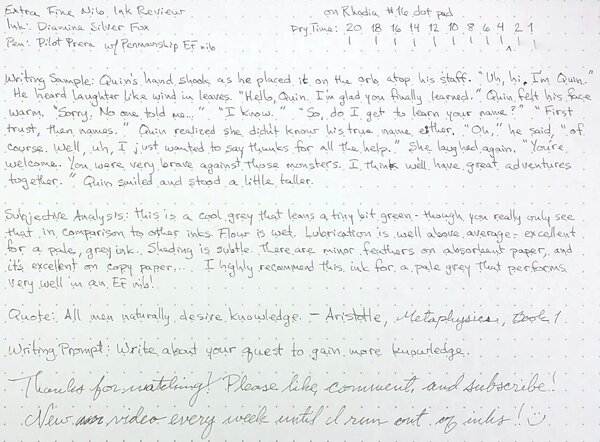 Extra Fine Nib Ink Review on Rhodia #16 dot pad
Ink: Diamine Silver Fox Dry Time: 20 18 16 14 12 10 8 6 4 2 1
Pen: Pilot Prera w/ Penmanship EF nib
Writing Sample: Quin's hand shook as he placed it on the orb atop his staff. "Uh, hi. I'm Quin."
He heard laughter like wind in leaves. "Hello, Quin. I'm glad you finally learned." Quin felt his face
warm. "Sorry. No one told me..." "I know." "So, do I get to learn your name?" "First
trust, then names." Quin realized she didn't know his true name either. "Oh," he said, "of
course. Well, uh, I just wanted to say thanks for all the help." She laughed again. "You're
welcome. You were very brave against those monsters. I think we'll have great adventures
together." Quin smiled and stood a little taller.
Subjective Analysis: This is a cool grey that leans a tiny bit green - though you really only see
that in comparison to other inks. Flow is wet. Lubrication is well above average - excellent
for a pale, grey ink. Shading is subtle. There are minor feathers on absorbent paper, and
it's excellent on copy paper... I highly recommend this ink for a pale grey that performs
very well in an EF nib!
Quote: All men naturally desire knowledge. - Aristotle, Metaphysics, Book 1
Writing Prompt: Write about your quest to gain more knowledge.
Thanks for watching! Please like, comment, and subscribe!
New video every week until I run out of inks! :)